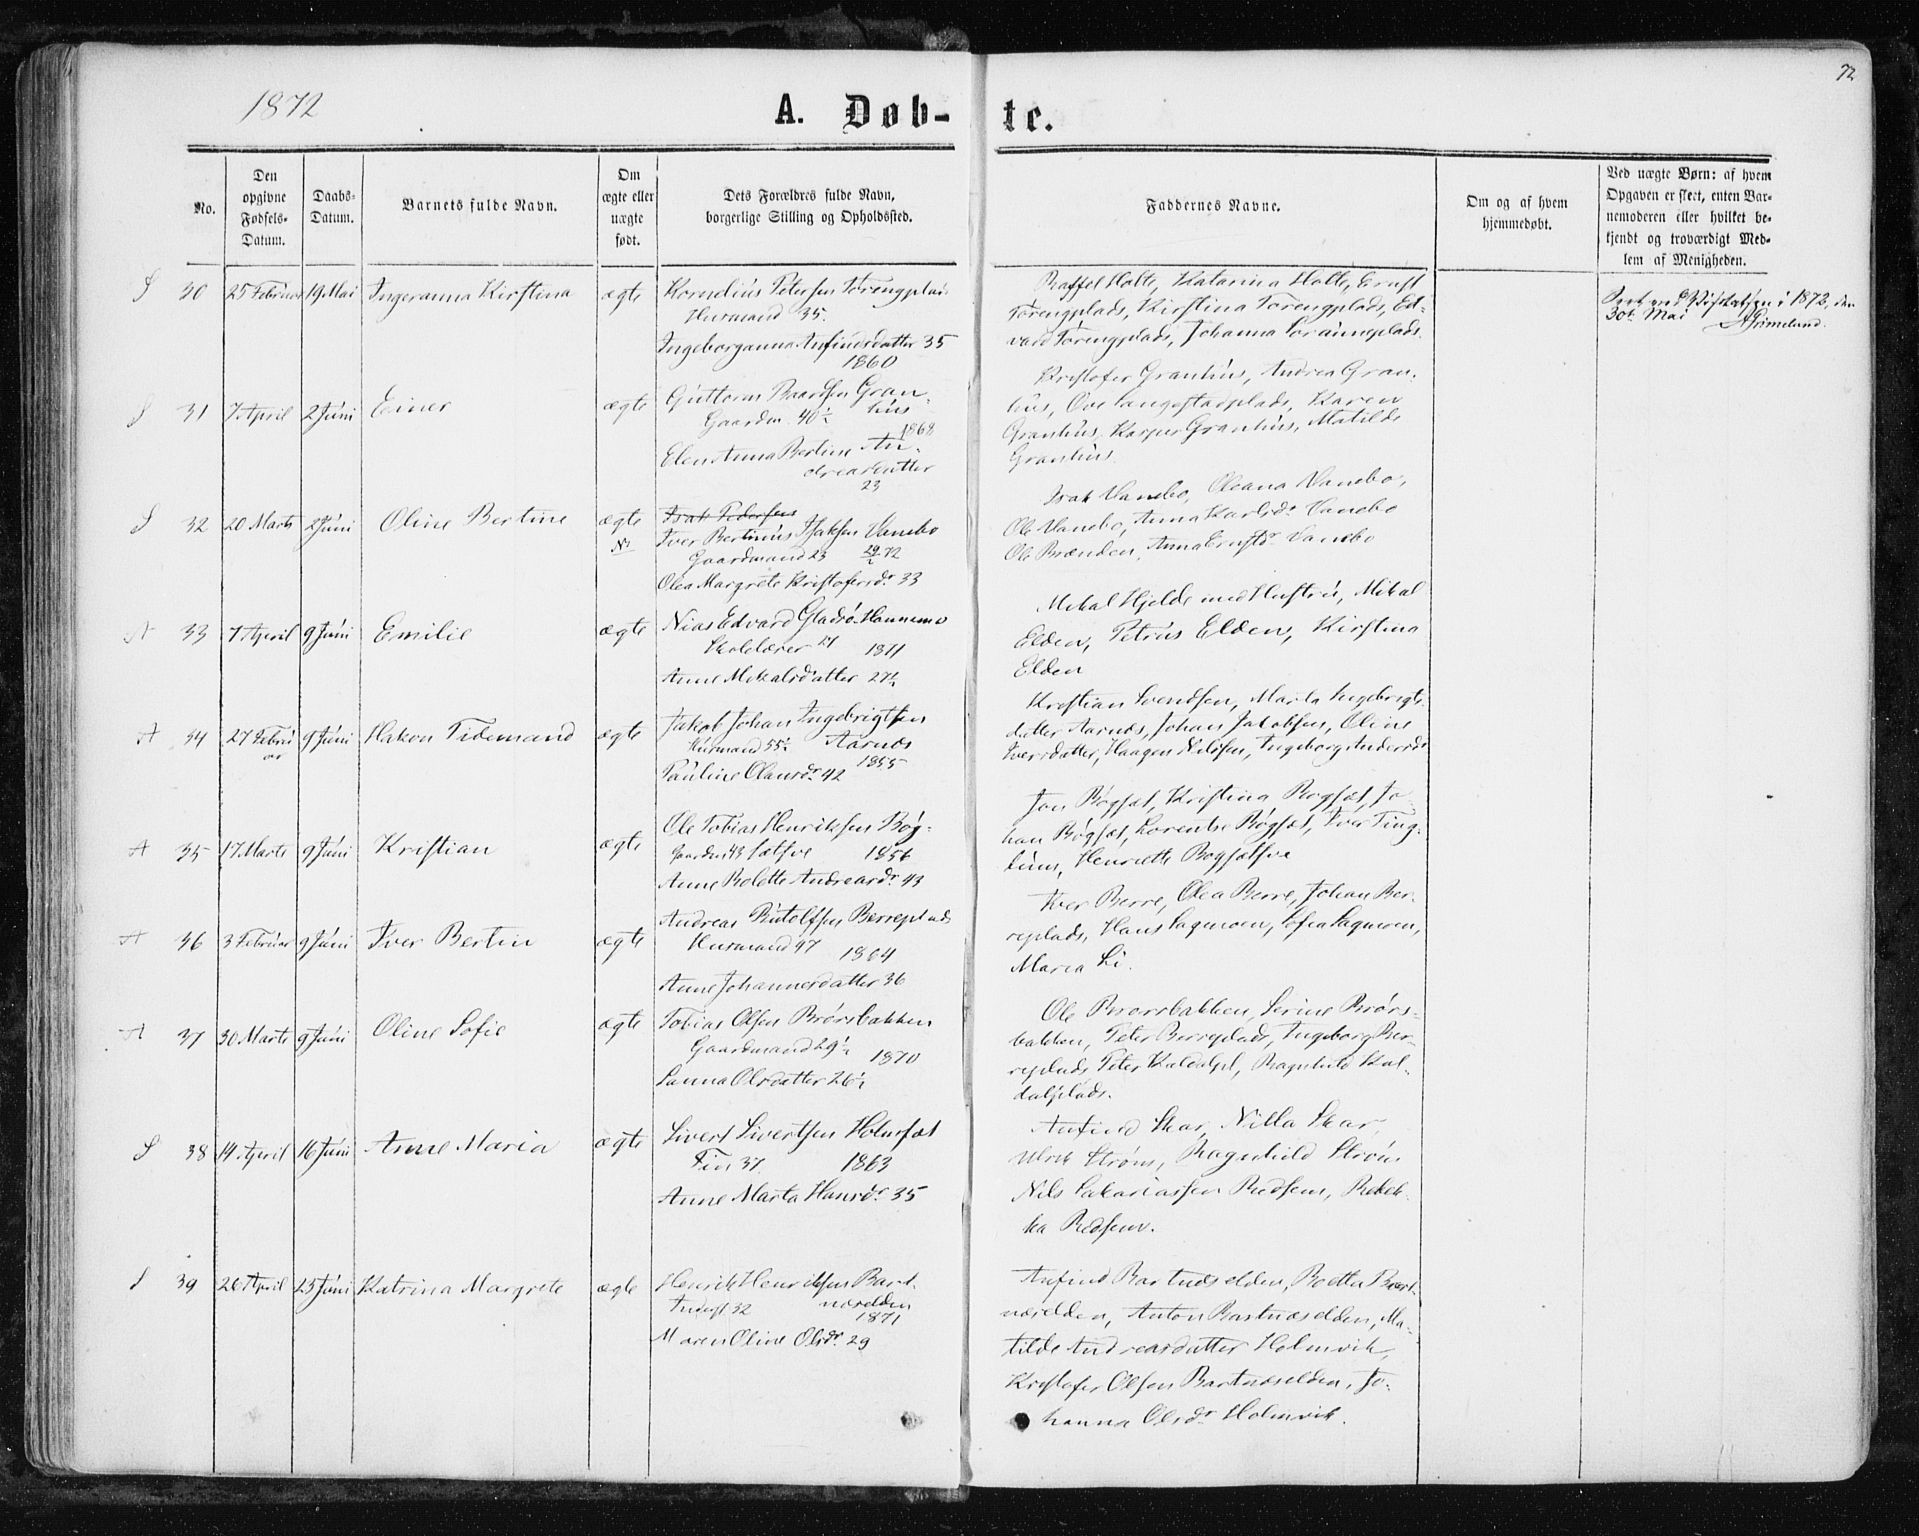 72
1872
A. Døb-
te.
No.
Den opgivne Fødsels-Datum.
Daabs-Datum.
Barnets fulde Navn.
Om ægte eller uægte født.
Dets Forældres fulde Navn, borgerlige Stilling og Opholdssted.
Faddernes Navne.
Om og af hvem hjemmedøbt.
Ved uægte Børn: af hvem Opgaven er skeet, enten Barnemoderen eller hvilket bekjendt og troværdigt Medlem af Menigheden.
S 30 25 Februar 19 Mai Ingeranna Kirstina ægte Kornelius Petersen
Husmand 35.
Ingeboranna Anfindsdatter 35
1860
Holte, Katarina Holte, Ernst
Kirstina
Johanna
i 1872, den
30te Mai
S 31 7 April 2 Juni Einer ægte Guttorm Baardsen Gran-
hus
Gaardm. 40½
1868
Elen Anna Bertine An-
dreasdatter
23
Kristofer Granhus, Andrea Gran-
hus, Ove Karen
Granhus, Kasper Granhus, Matilde
Granhus.
S 32 20 Marts 2 Juni Oline Bertine ægte Isak Pedersen
N
Iver Bertinus Isaksen Vanebo
Gaardmand 23 72
Olea Margrete Kristofersdr 33
Isak Vanebo, Oleana Vanebo,
Ole Vanebo, Anna Karlsdr Vanebo
Ole Brænden, Anna Ernstdr Vanebo
A 33 7 April 9 Juni Emilie ægte Nias Edvard Gladsø Hannemo
Skolelærer 1871
Anne Mikalsdatter 27½
Mikal Hjelde med Hustru, Mikal
Elden, Petrus Elden, Kirstina
Elden
A 34 27 Febru
ar
9 Juni Hakon Tidemand ægte Jakob Johan Ingebrigtsen
Husmand 55½ Aarnes
1855
Pauline Olausdr 42
Kristian Svendsen, Marta Ingebrigts-
datter Aarnes, Johan Jakobsen, Oline
Iversdatter, Haagen Nilssen, Ingeborg Andersdr
A 35 17 Marts 9 Juni Kristian ægte Ole Tobias Henriksen Bög-
1856
Anne Bolette Andreasdr 43
Jon Bögset, Kristina Bogset, Jo-
han Bögset, Lorentse Bögset, Iver Ting-
Henriette
A 36 3 Februar 9 Juni Iver Bertin ægte Andreas Rutolfsen Berreplads
Husmand 47
1864
Anne Johannesdatter 36
Iver Berre, Olea Berre, Johan Ber-
replads, Hans Sagmoen, Sofia Sagmoen,
Maria Li.
A 37 30 Marts 9 Juni Oline Sofie ægte Tobias Olsen Brörsbakken
Gaardmand 29½
1870
Sanna Olsdatter 26½
Ole Brorsbakken, Serine Brörs-
bakken, Peter Berreplads, Ingeborg Ber-
replads, Peter Kaldalpl, Ragnhild Kal-
dalplads.
S 38 14 April 16 Juni Anne Maria ægte Sivert Sivertsen Holmset
37. 1863
Anne Marta Hansdr 35
Anfind Skar, Nilla Skar,
Ulrik Strøm, Ragnhild Strøm
Nils Sakariassen Redsem, Rebek-
ka Redsem.
S 39 26 April 23 Juni Katrina Margrete ægte Henrik Henriksen Bart-
næselden
Inderst 32
1871
Maren Oline Olsdr 29
Anfind Bartnæselden, Bart-
næselden, Anton Bartnæselden, Ma-
tilde Andreasdatter Holmvik,
Kristofer Olsen Bartnæselden, Jo-
hanna Olsdr Holmvik.